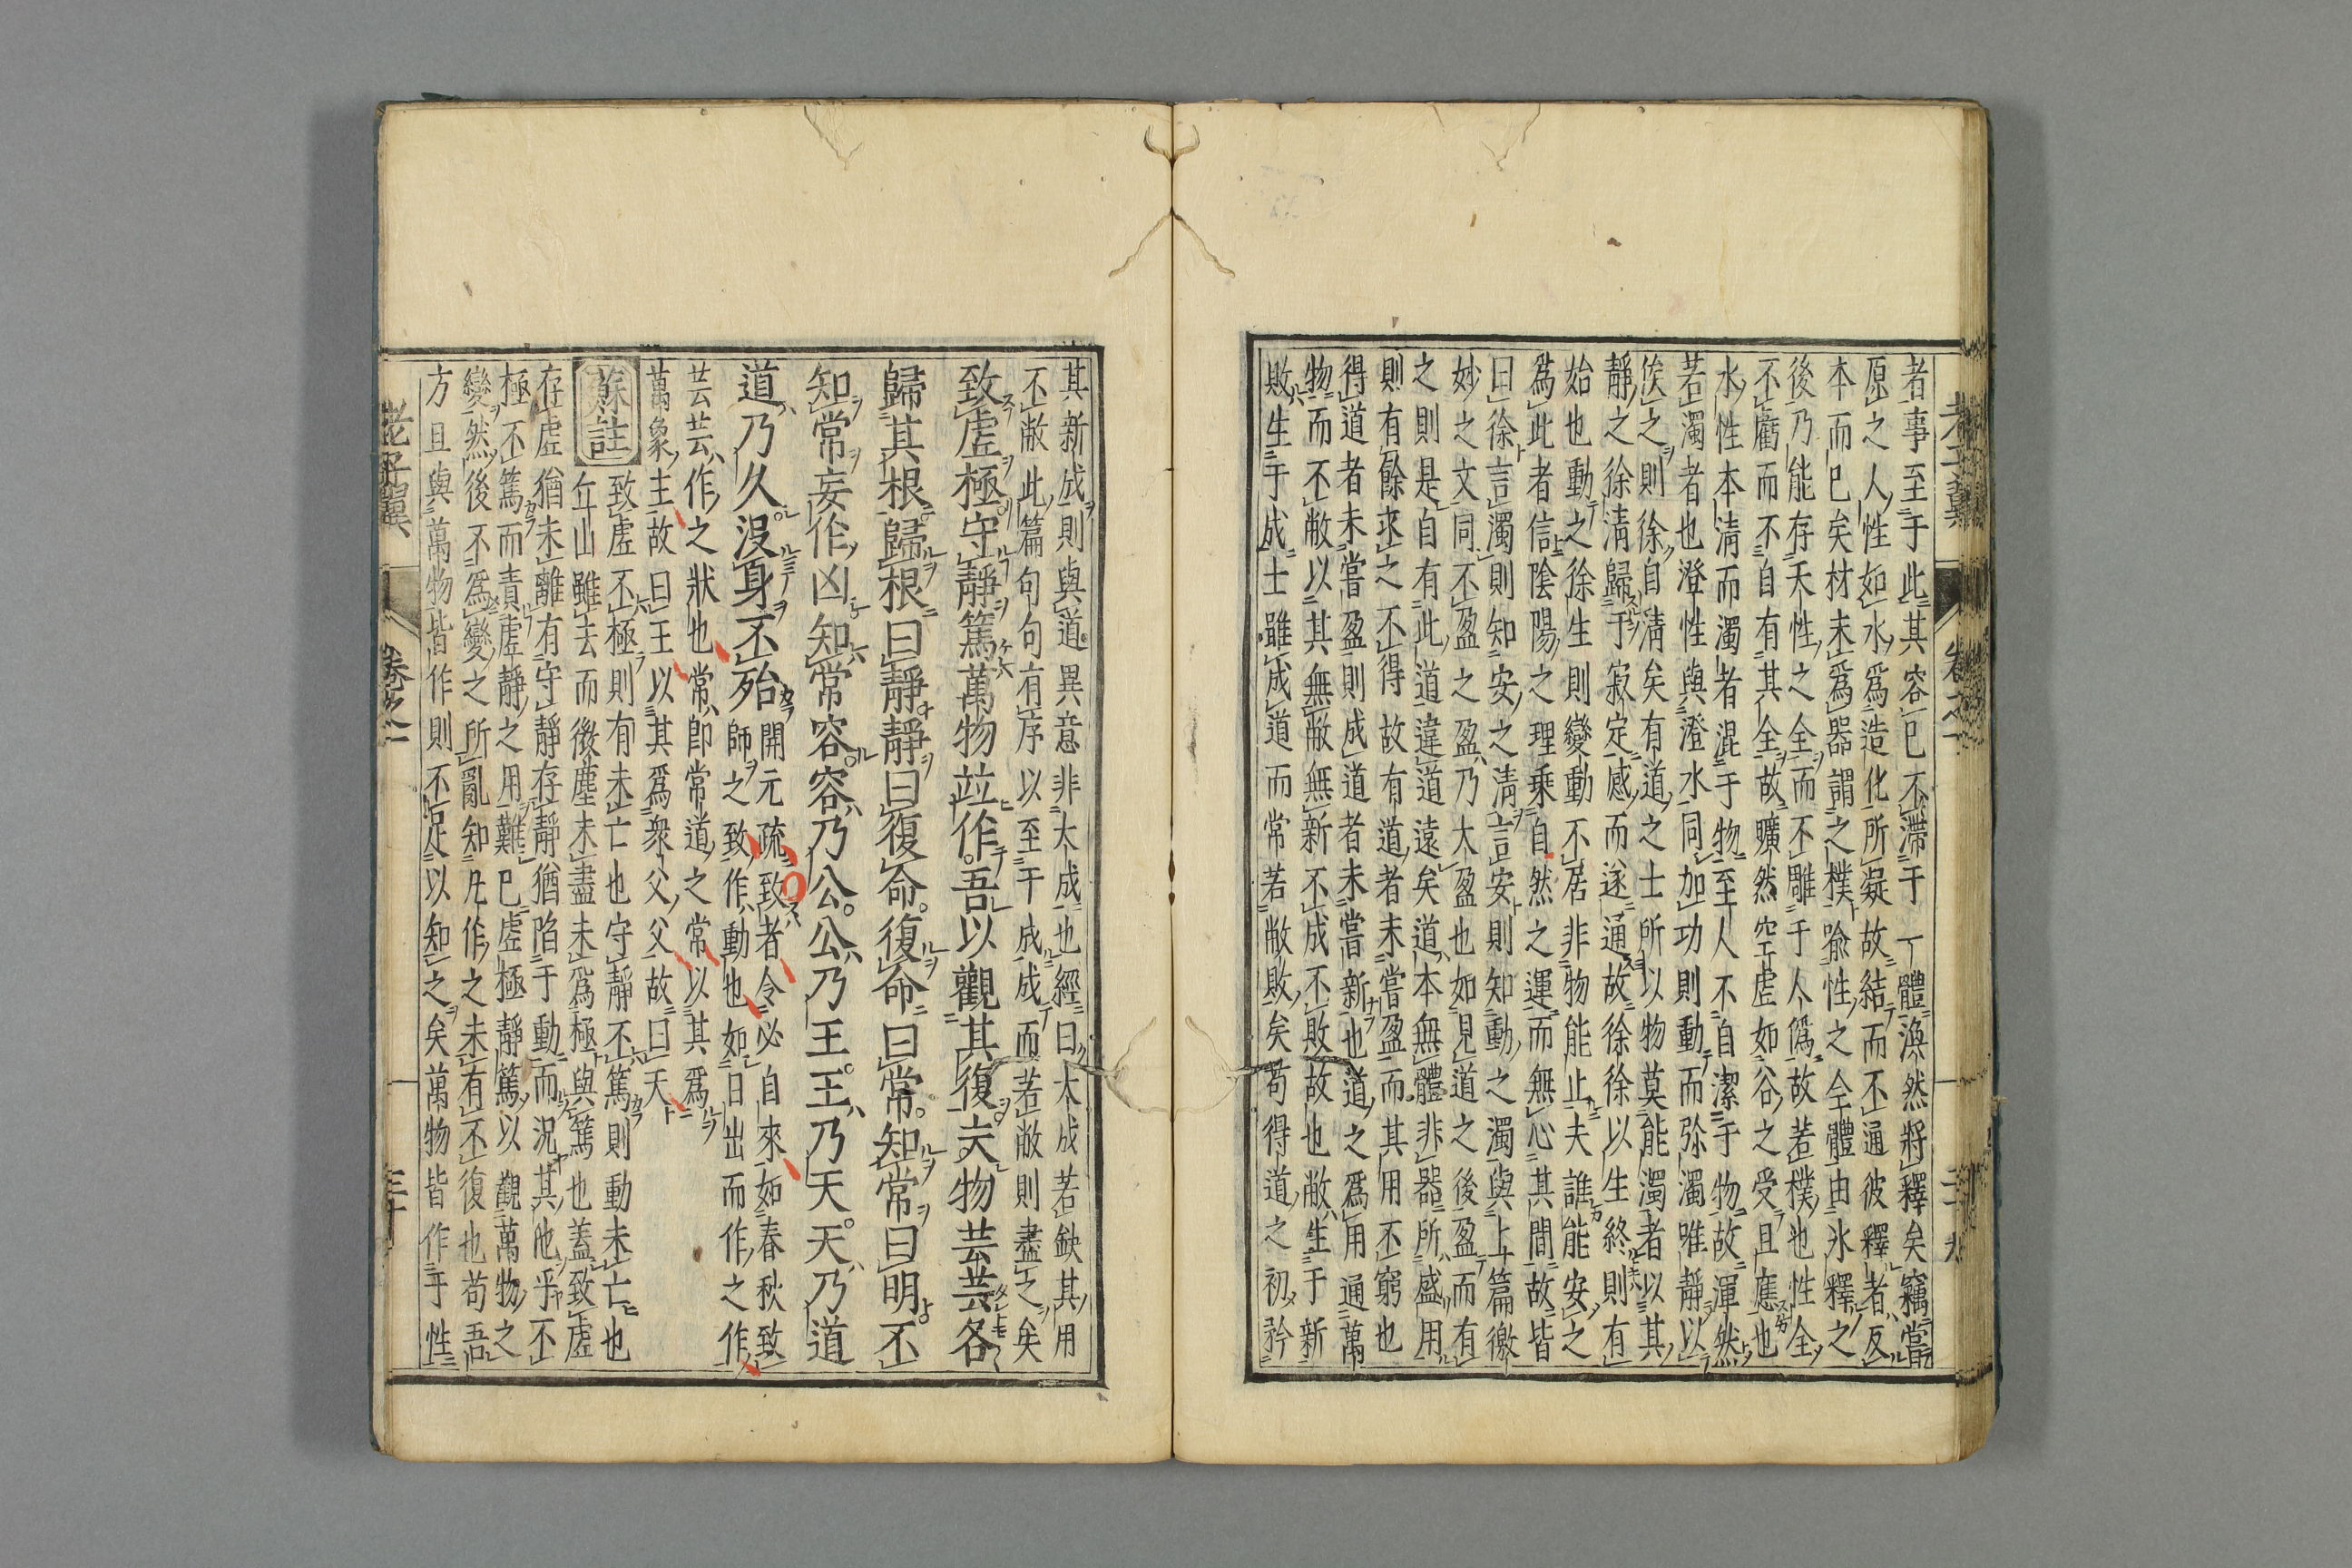 者事至于此其容已不滯于一體渙然將釋矣竊嘗
原之人性如水爲造化所凝故結而不通彼釋者反
本而已矣材未爲器謂之樸喻性之全體由氷釋之
後乃能存天性之全而不雕于人僞故若樸也性全
不虧而不自有其全故曠然空虛如谷之受且應也
水性本淸而濁者混于物至人不自潔于物故渾然
若濁者也澄性與澄水同加功則動而弥濁唯靜以
俟之則徐自淸矣有道之士所以物莫能濁者以其
靜之徐淸歸于寂定感而遂通故徐徐以生終則有
始也動之徐生則變動不居非物能止夫誰能安之
爲此者信陰陽之理乗自然之運而無心其間故皆
曰徐言濁則知安之淸言安則知動之濁與上篇徼
妙之文同不盈之盈乃大盈也如見道之後盈而有
之則是自有此道違道遠矣道本無體非器所盛用
則有餘求之不得故有道者未嘗盈而其用不窮也
得道者未嘗盈則成道者未嘗新也道之爲用通萬
物而不敝以其無敝無新不成不敗故也敝生于新
敗生于成士雖成道而常若敝敗矣苟得道之初矜
其新成則與道異意非大成也經曰大成若缺其用
不敝此篇句句有序以至于成成而若敝則盡之矣
致虛極守靜篤萬物竝作吾以觀其復夫物芸芸各
歸其根歸根曰靜靜曰復命復命曰常知常曰明不
知常妄作凶知常容容乃公公乃王王乃天天乃道
道乃久沒身不殆
開元疏致者令必自來如春秋致
師之致作動也如日出而作之作
芸芸作之狀也常卽常道之常以其爲
萬象主故曰王以其爲衆父父故曰天
蘇註
致虛不極則有未亡也守靜不篤則動未亡也
丘山雖去而微塵未盡未爲極與篤也蓋致虛
存虛猶未離有守靜存靜猶陷于動而況其他乎不
極不篤而責虛靜之用難已虛極靜篤以觀萬物之
變然後不爲變之所亂知凡作之未有不復也苟吾
方且與萬物皆作則不足以知之矣萬物皆作于性
老子翼
卷之一
三十